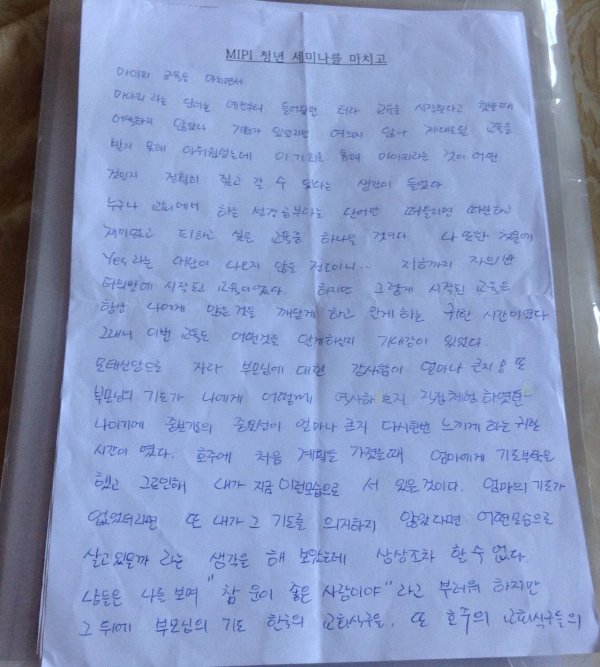 MIPI 청년 세미나를 마치고
마이피 교육을 마치면서
마이피 라는 단어는 예전부터 들어왔던 터라 교육을 시작한다고 했을때
어색하지 않았다 기회가 있었지만 여의치 않아 제대로된 교육을
받지 못해 아쉬웠었는데 이 기회를 통해 마이피라는 것이 어떤
것인지 정확히 짚고 갈 수 있다는 생각이 들었다
누구나 교회에서 하는 성경공부라는 단어만 떠올리면 따분하고
재미없고 피하고 싶은 교육중 하나일 것이다 나 또한 첫물음에
Yes 라는 대답이 나오지 않을 정도이니... 지금까지 자의반
타의반에 시작된 교육이었다. 하지만 그렇게 시작된 교육은
항상 나에게 많은것을 깨닫게 하고 알게하는 귀한 시간이었다
그래서 이번 교육도 어떤것을 알게하실지 기대감이 있었다.
모태신앙으로 자라 부모님에 대한 감사함이 얼마나 큰지 또
부모님의 기도가 나에게 어떻게 역사하는지 직접체험 하였던
나이기에 중보기도의 중요성이 얼마나 큰지 다시한번 느끼게 하는 귀한
시간이 였다. 호주에 처음 계획을 가졌을때 엄마에게 기도부탁을
했고 그로인해 내가 지금 이런모습으로 서 있는것이다. 엄마의 기도가
없었더라면 또 내가 그 기도를 의지하지 않았다면 어떤모습으로
살고있을까 라는 생각을 해 보았는데 상상조차 할 수 없다.
남들은 나를 보며 "참 운이 좋은 사람이야" 라고 부러워 하지만
그 뒤에 부모님의 기도 한국의 교회식구들, 또 호주의 교회식구들의